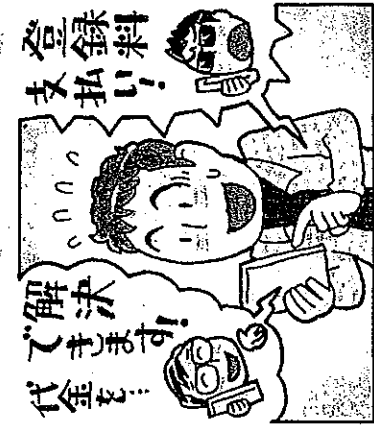 登録料
支払い!
解決
できます!
代金を…